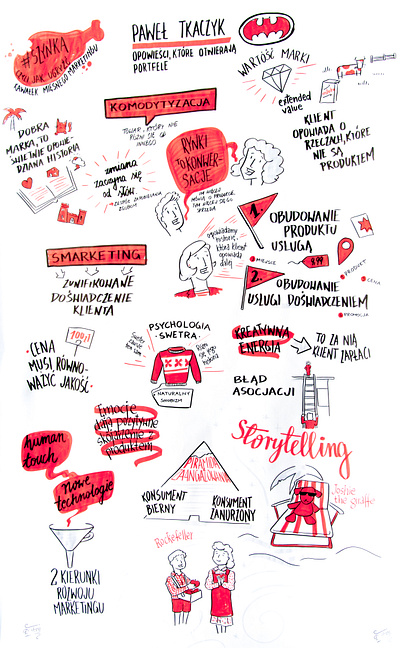 #SZYNKA
CZYLI JAK UGRYŹĆ
KAWAŁEK MIĘSNEGO MARKETINGU
PAWEŁ TKACZYK
OPOWIEŚCI, KTÓRE OTWIERAJĄ
PORTFELE
WARTOŚĆ MARKI
extended
value
KLIENT
OPOWIADA O
RZECZACH, KTÓRE
NIE SĄ
PRODUKTEM
KOMODYTYZACJA
TOWAR, KTÓRY NIE
RÓŻNI SIĘ OD
INNEGO
DOBRA
MARKA, TO
ŚWIETNIE OPOWIE-
DZIANA HISTORIA
zmiana
zaczyna się
od słów.
RYNKI
TO KONWER-
SACJE
opowiadamy
historie,
którą klient
opowiada
dalej
1.
OBUDOWANIE
PRODUKTU
USŁUGĄ
MIEJSCE
8,99
PRODUKT
CENA
PROMOCJA
2.
OBUDOWANIE
USŁUGI DOŚWIADCZENIEM
SMARKETING
ZUNIFIKOWANE
DOŚWIADCZENIE
KLIENTA
100zł
CENA
MUSI RÓWNO-
WAŻYĆ JAKOŚĆ
PSYCHOLOGIA
SWETRA
NATURALNY
SNOBIZM
KREATYWNA
ENERGIA
TO ZA NIĄ
KLIENT ZAPŁACI
BŁĄD
ASOCJACJI
Emocje
dają pozytywne
skojarzenie z
produktem
human
touch
nowe
technologie
2 KIERUNKI
ROZWOJU
MARKETINGU
PIRAMIDA
ZAANGAŻOWANIA
KONSUMENT
BIERNY
KONSUMENT
ZANURZONY
Storytelling
Joshie
the giraffe
Rockefeller